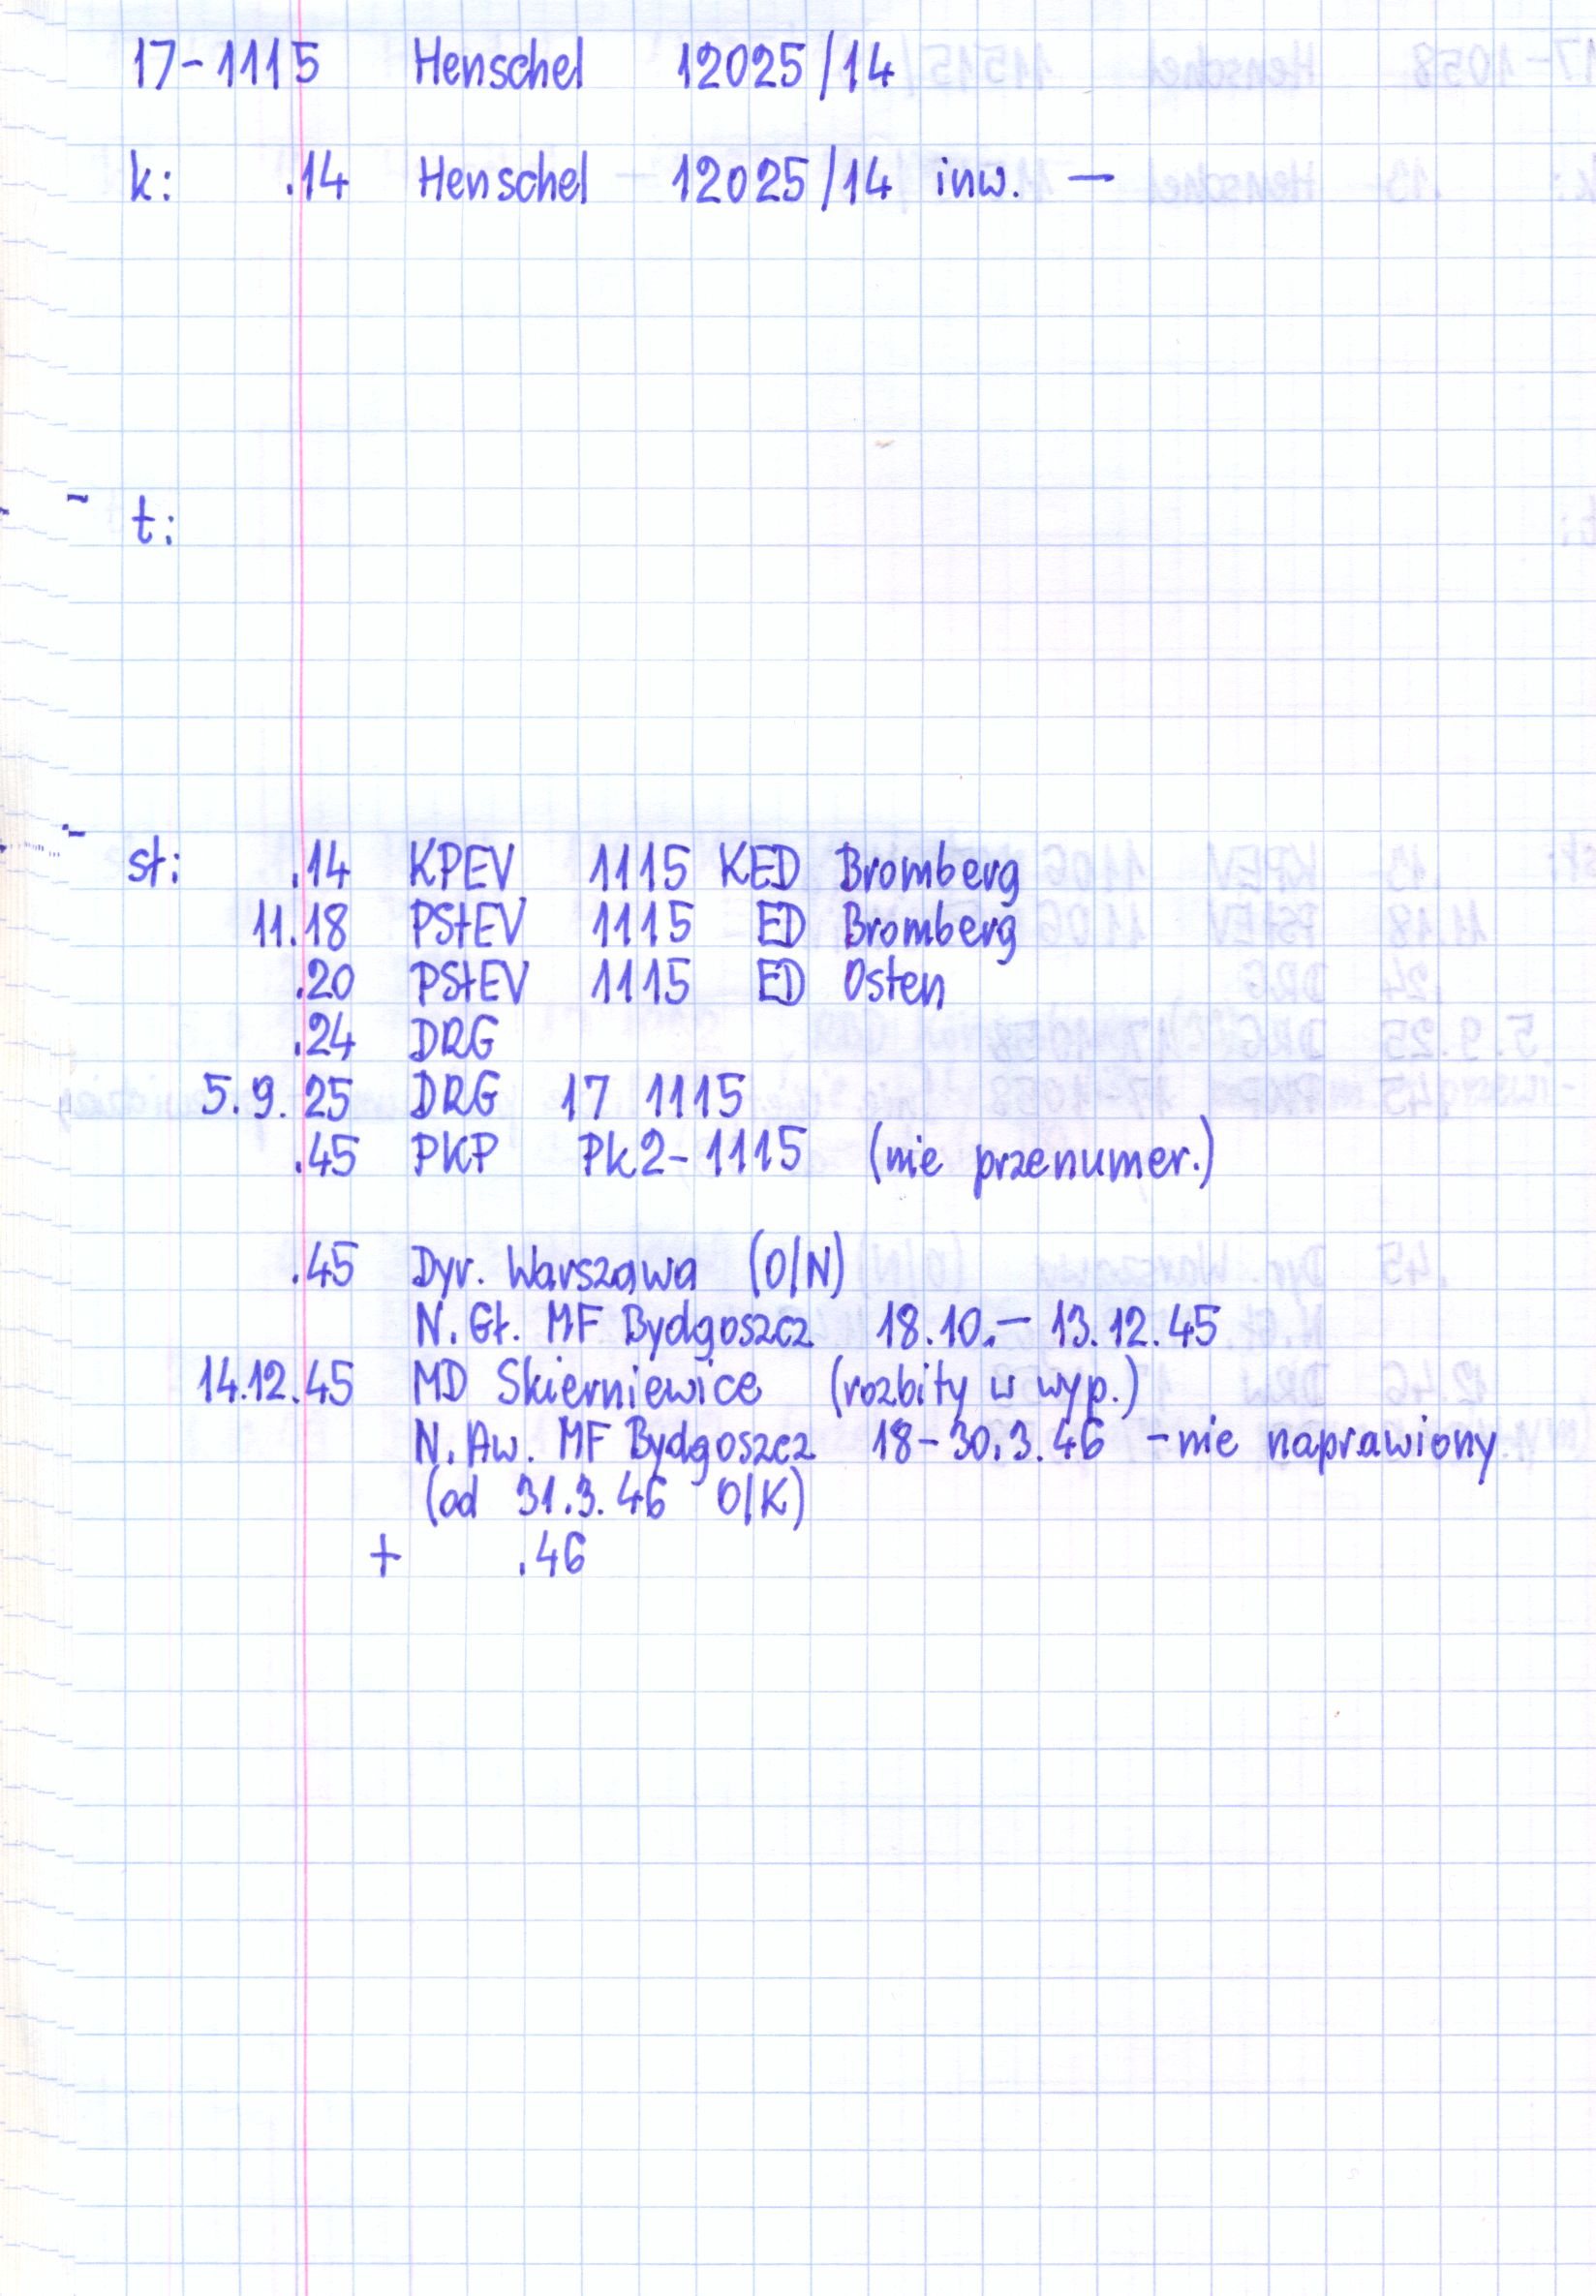 17-1115 Henschel 12025/14
k: .14 Henschel 12025/14 inw. —
t:
st: .14 KPEV 1115 KED Bromberg
11.18 PStEV 1115 ED Bromberg
.20 PStEV 1115 ED Osten
.24 DRG
5.9.25 DRG 17 1115
.45 PKP Pk2-1115 (nie przenumer.)
.45 Dyr. Warszawa (O/N)
N. Gł. MF Bydgoszcz 18.10.— 13.12.45
14.12.45 MD Skierniewice (rozbity w wyp.)
N. Aw. MF Bydgoszcz 18-30.3.46 - nie naprawiony
(od 31.3.46 O/K)
+ .46